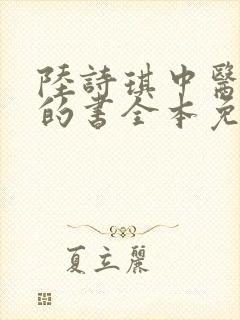 陸詩琪中醫
的書全本免
夏立麗